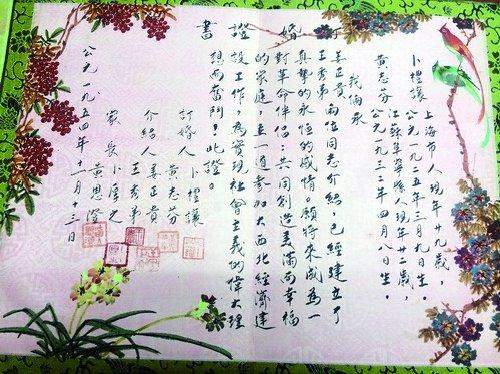 卜禮讓 上海市人現年廿九歲，
公元一九二五年三月九日生。
黃志芬 江蘇阜寧縣人現年廿二歲，
公元一九三二年四月八日生。
我倆承
姜正貴
王秀弟 兩位同志介紹，已經建立了
真摯的永恆的感情。願將來成為一
對革命伴侶：共同創造美滿而幸福
的家庭，並一道參加大西北經濟建
設工作，為實現社會主義的偉大理
想而奮鬥！此證。
訂婚人 卜禮讓
黃志芬
介紹人 姜正貴
王秀弟
家長 卜厚之
黃恩澄
公元一九五四年十一月十三日
訂婚證書